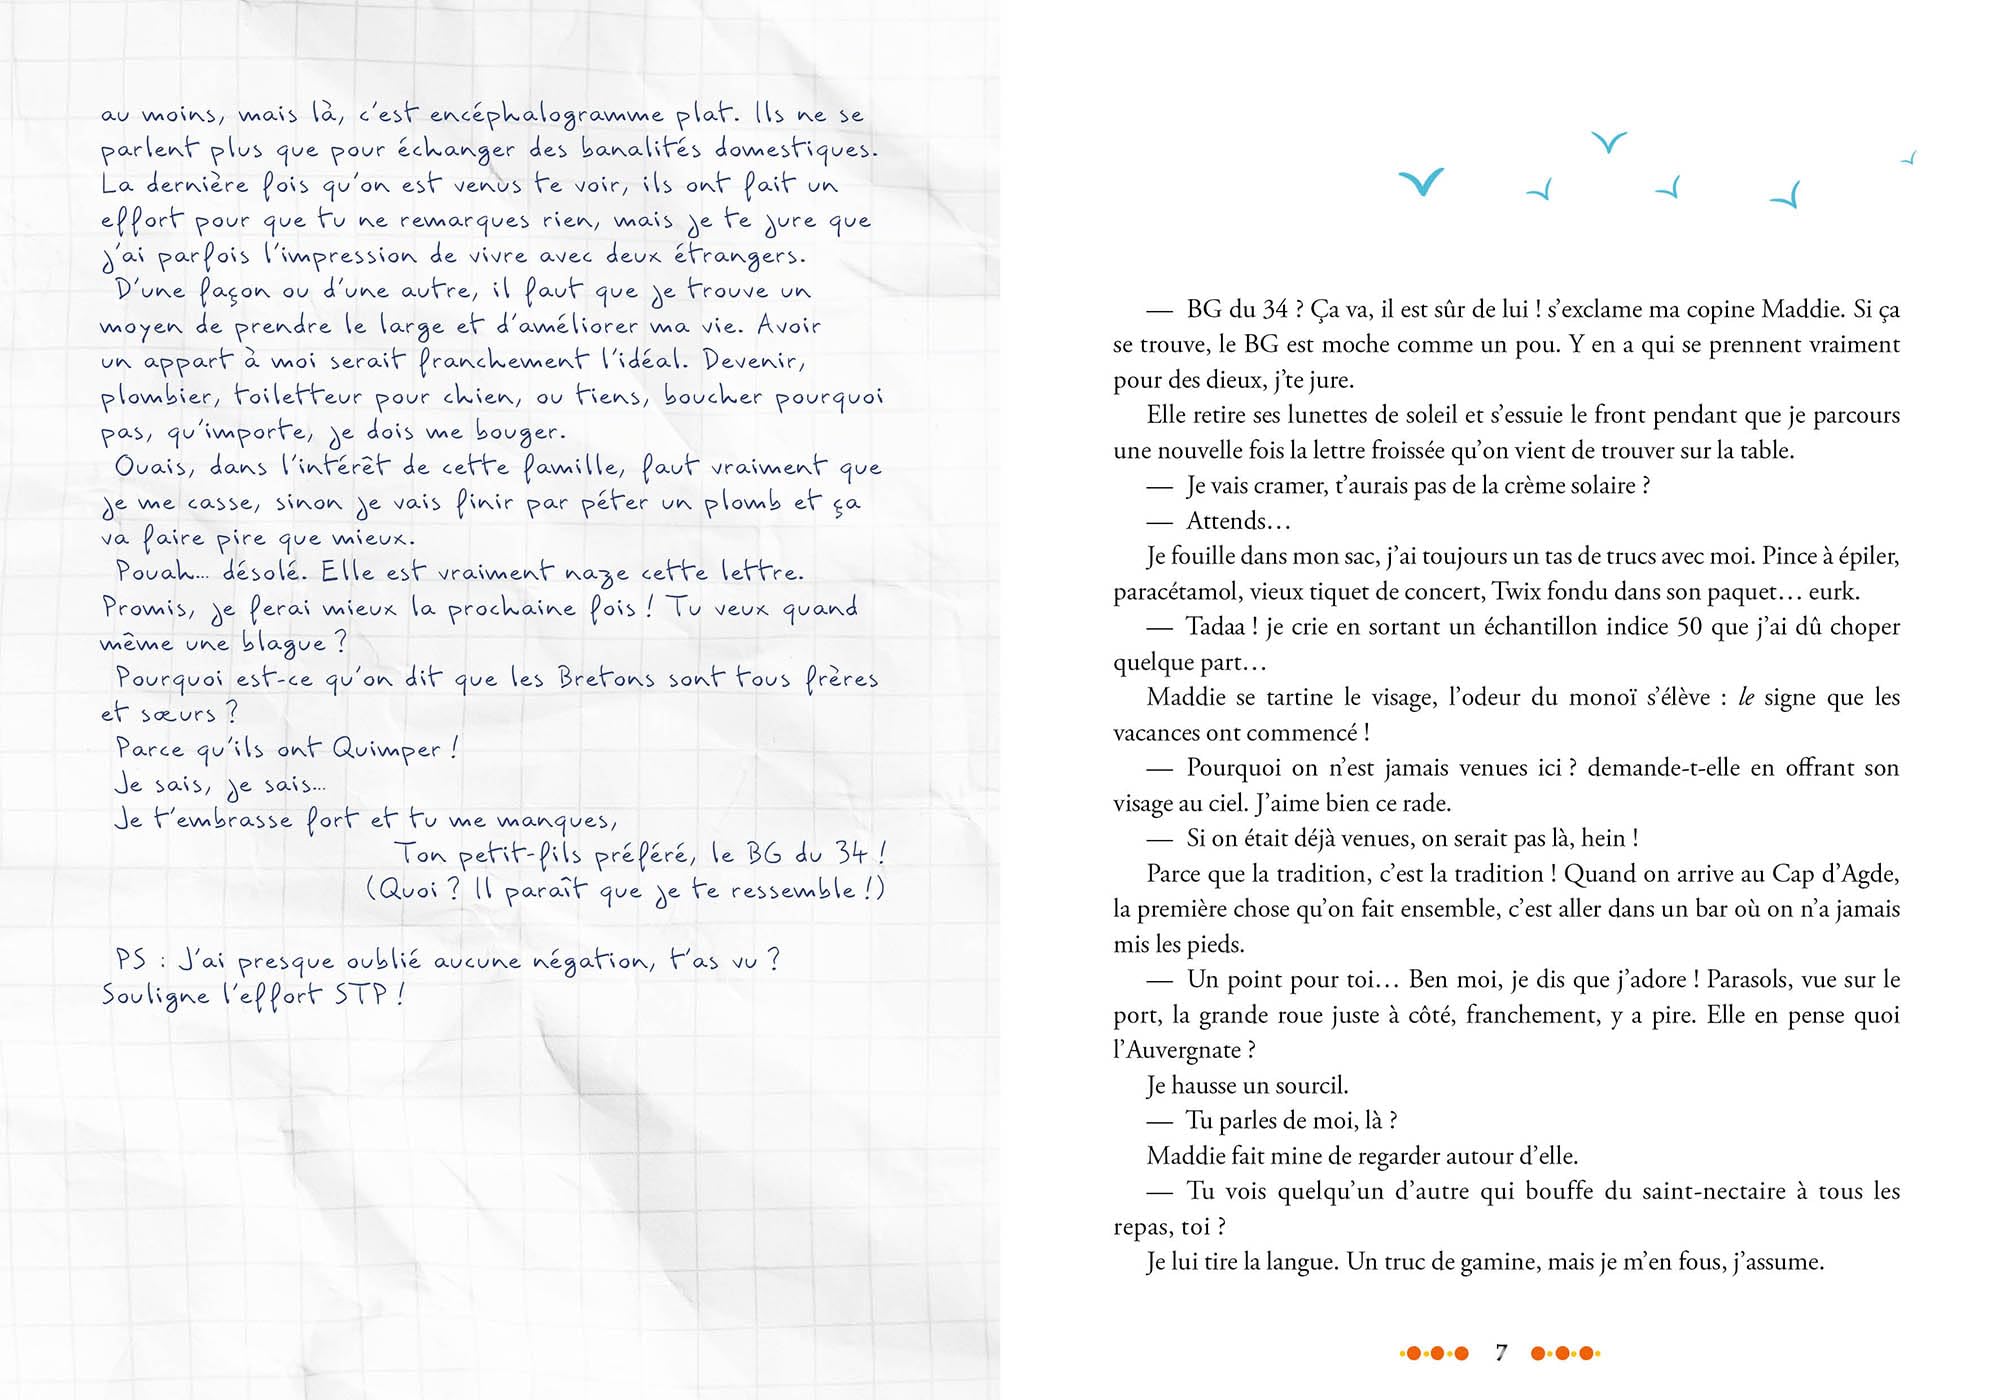 au moins, mais là, c'est encéphalogramme plat. Ils ne se
parlent plus que pour échanger des banalités domestiques.
La dernière fois qu'on est venus te voir, ils ont fait un
effort pour que tu ne remarques rien, mais je te jure que
j'ai parfois l'impression de vivre avec deux étrangers.
D'une façon ou d'une autre, il faut que je trouve un
moyen de prendre le large et d'améliorer ma vie. Avoir
un appart à moi serait franchement l'idéal. Devenir,
plombier, toiletteur pour chien, ou tiens, boucher pourquoi
pas, qu'importe, je dois me bouger.
Ouais, dans l'intérêt de cette famille, faut vraiment que
je me casse, sinon je vais finir par péter un plomb et ça
va faire pire que mieux.
Pouah... désolé. Elle est vraiment naze cette lettre.
Promis, je ferai mieux la prochaine fois ! Tu veux quand
même une blague ?
Pourquoi est-ce qu'on dit que les Bretons sont tous frères
et sœurs ?
Parce qu'ils ont Quimper !
Je sais, je sais...
Je t'embrasse fort et tu me manques,
Ton petit-fils préféré, le BG du 34 !
(Quoi ? Il paraît que je te ressemble !)
PS : J'ai presque oublié aucune négation, t'as vu ?
Souligne l'effort STP !
— BG du 34 ? Ça va, il est sûr de lui ! s'exclame ma copine Maddie. Si ça
se trouve, le BG est moche comme un pou. Y en a qui se prennent vraiment
pour des dieux, j'te jure.
Elle retire ses lunettes de soleil et s'essuie le front pendant que je parcours
une nouvelle fois la lettre froissée qu'on vient de trouver sur la table.
— Je vais cramer, t'aurais pas de la crème solaire ?
— Attends…
Je fouille dans mon sac, j'ai toujours un tas de trucs avec moi. Pince à épiler,
paracétamol, vieux tiquet de concert, Twix fondu dans son paquet… eurk.
— Tadaa ! je crie en sortant un échantillon indice 50 que j'ai dû choper
quelque part…
Maddie se tartine le visage, l'odeur du monoï s'élève : le signe que les
vacances ont commencé !
— Pourquoi on n'est jamais venues ici ? demande-t-elle en offrant son
visage au ciel. J'aime bien ce rade.
— Si on était déjà venues, on serait pas là, hein !
Parce que la tradition, c'est la tradition ! Quand on arrive au Cap d'Agde,
la première chose qu'on fait ensemble, c'est aller dans un bar où on n'a jamais
mis les pieds.
— Un point pour toi… Ben moi, je dis que j'adore ! Parasols, vue sur le
port, la grande roue juste à côté, franchement, y a pire. Elle en pense quoi
l'Auvergnate ?
Je hausse un sourcil.
— Tu parles de moi, là ?
Maddie fait mine de regarder autour d'elle.
— Tu vois quelqu'un d'autre qui bouffe du saint-nectaire à tous les
repas, toi ?
Je lui tire la langue. Un truc de gamine, mais je m'en fous, j'assume.
7